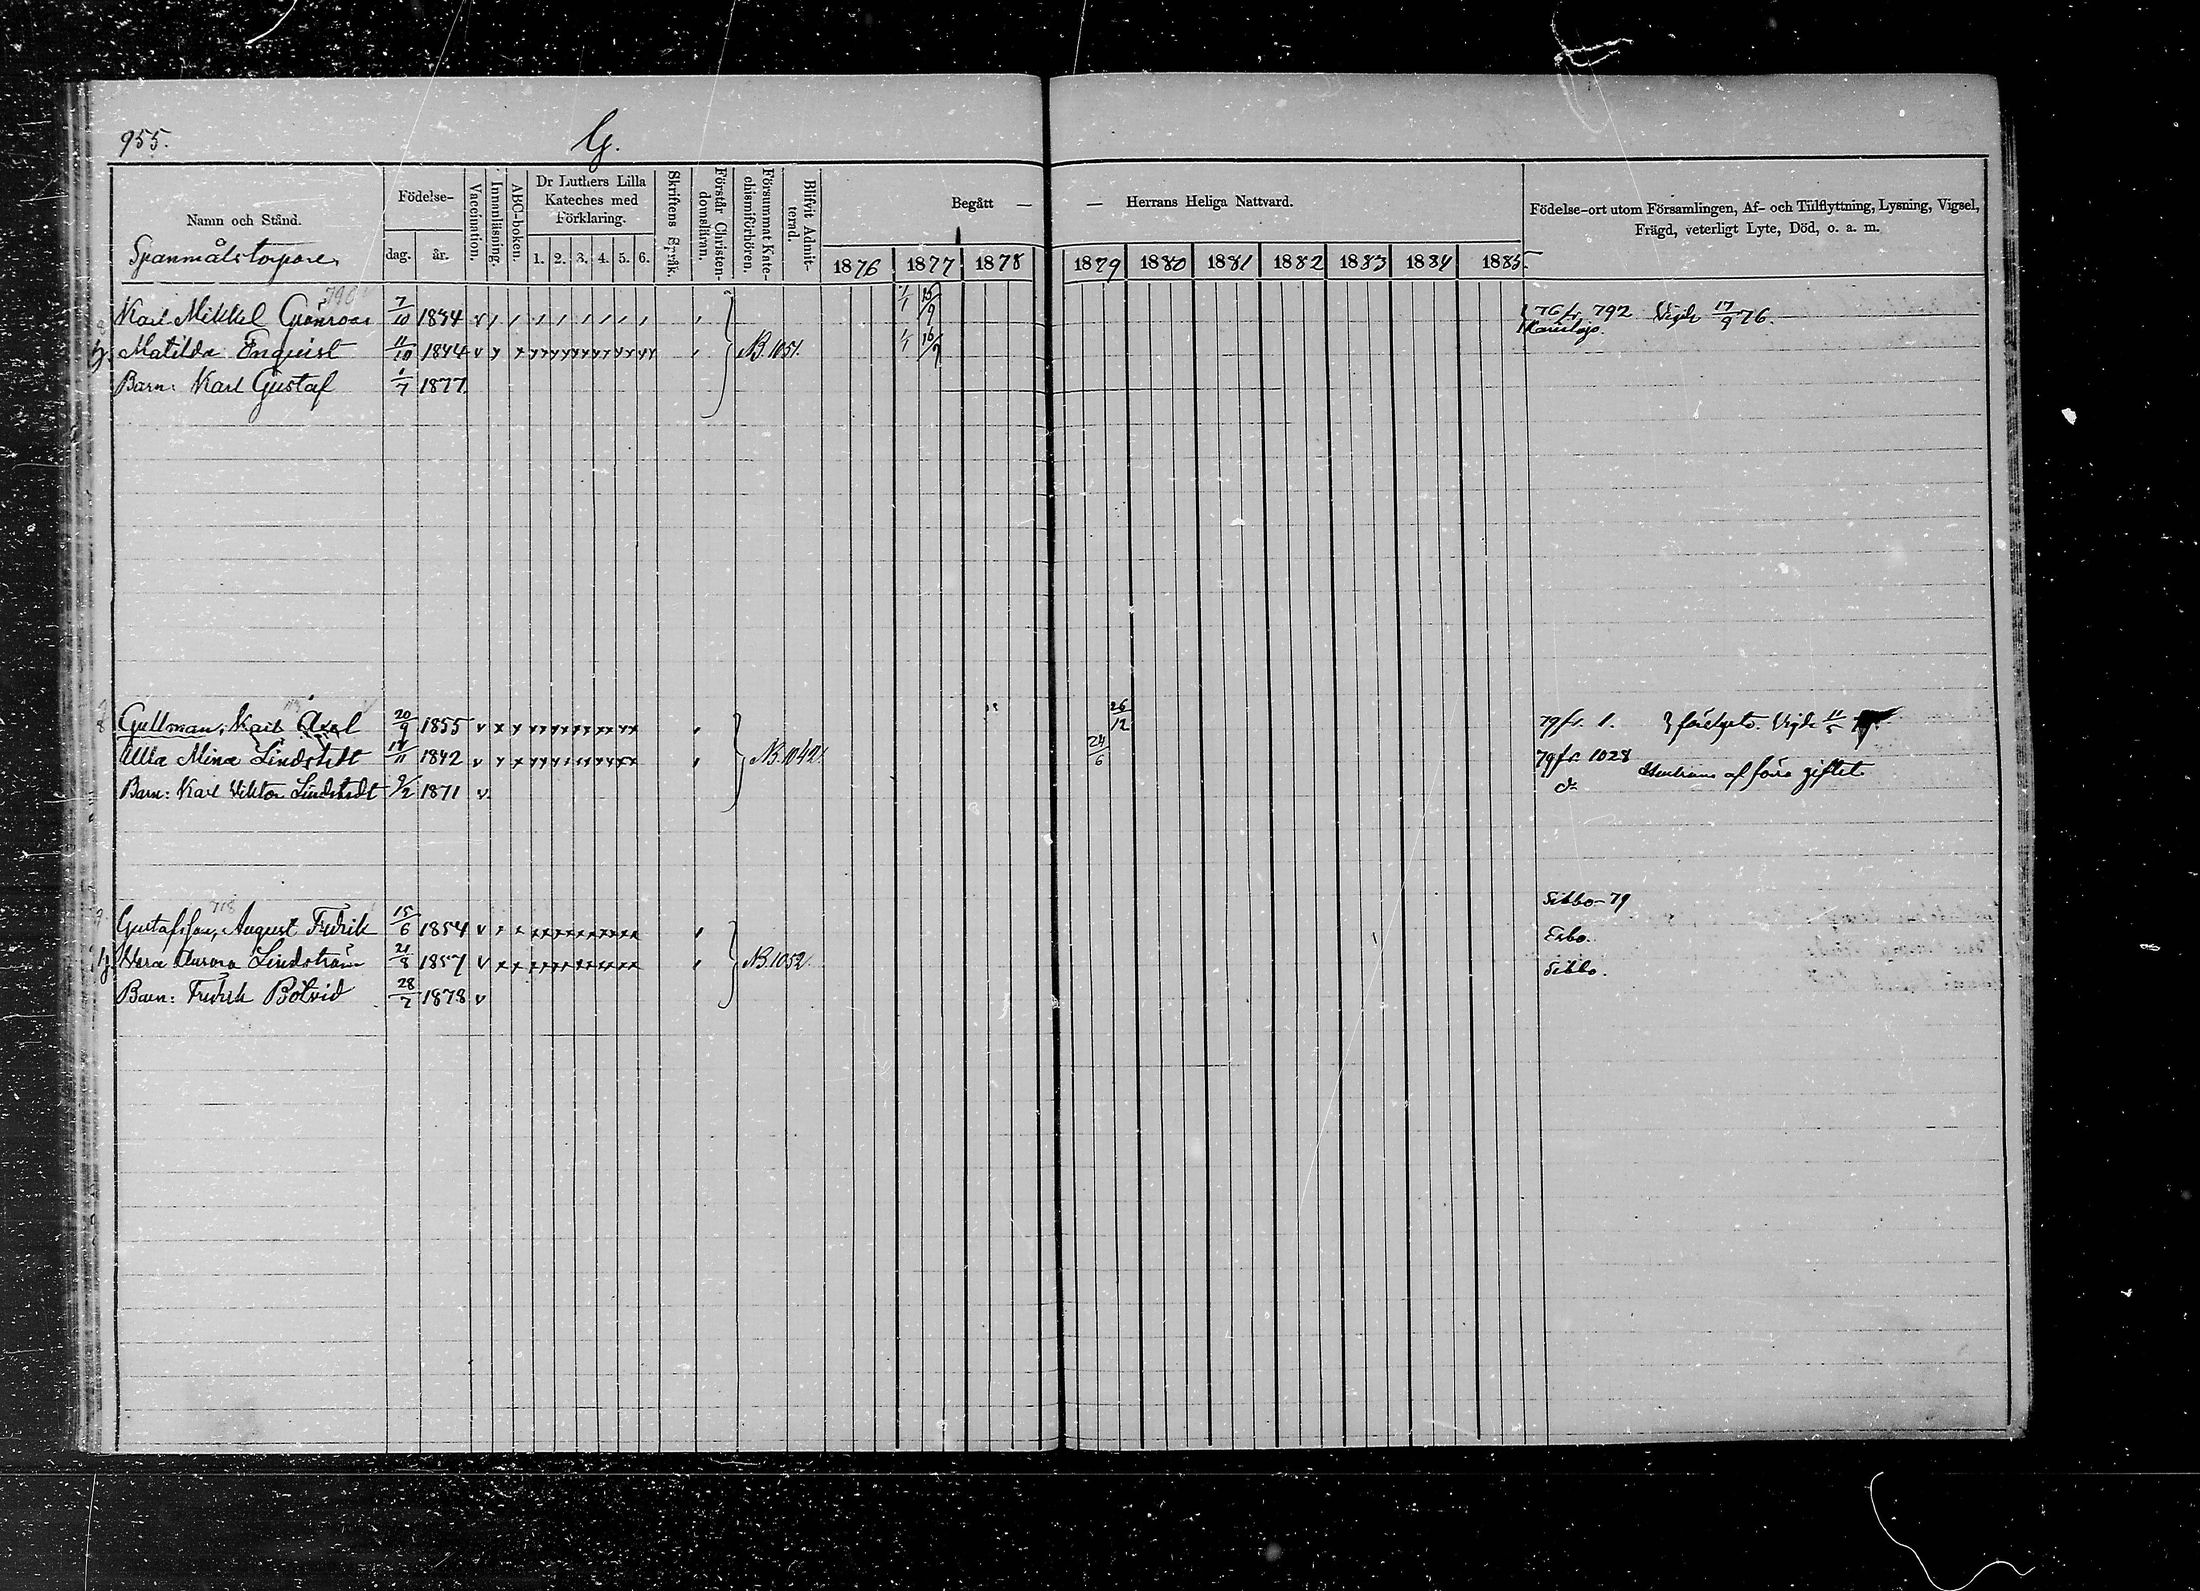 955.
G.
Namn och Stånd.
Födelse-
dag. år.
Vaccination.
Innanläsning.
ABC-boken.
Dr Luthers Lilla
Kateches med
Förklaring.
1. 2. 3. 4. 5. 6.
Skriftens Språk.
Förstår Christen-
domsläran.
Försummat Kate-
chismiförhören.
Blifvit Admit-
terad.
Begått — — Herrans Heliga Nattvard.
1876 1877 1878 1879 1880 1881 1882 1883 1884 1885.
Födelse-ort utom Församlingen, Af- och Tillflyttning, Lysning, Vigsel,
Frägd, veterligt Lyte, Död, o. a. m.
Spanmålstorpare
Karl Mikkel Grönroos 7/10 1834 76 fr. 792 Vigde 17/9 76.
Karislojo.
Matilda Enqvist 11/10 1844 N.B. 1051.
Barn: Karl Gustaf 1/7 1877.
Gullman, Karl Axel 20/9 1855 26/12 79 fr. 1. Vigde 11/5
Ulla Mina Lindstedt 1842 N.B. 1042. 24/6 79 fr. 1028
Barn: Karl Viktor Lindstedt 9/2 1871 v d:o Hustruns af förra giftet
718
Sibbo - 79
Gustafsson, August Fredrik 15/6 1854 Esbo.
Aurora Lindström 21/8 1857 N.B. 1052. Sibbo.
Barn: Fredrik Botvid 28/7 1878 v